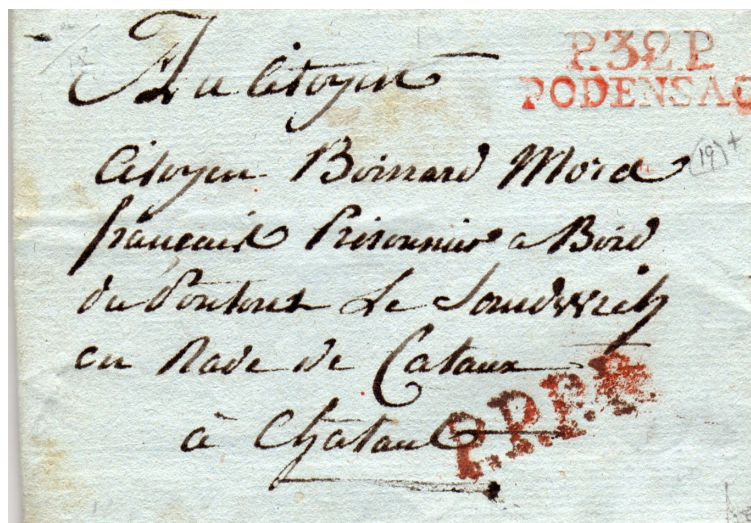 P.32.P.
PODENSAC
Au Citoyen
(19)+
Citoyen Boinard Mord
francaise Prisonnier a Bord
du Pontont Le Sandwich
en Rade de Cataux
à Chataux
P.P.P.P.